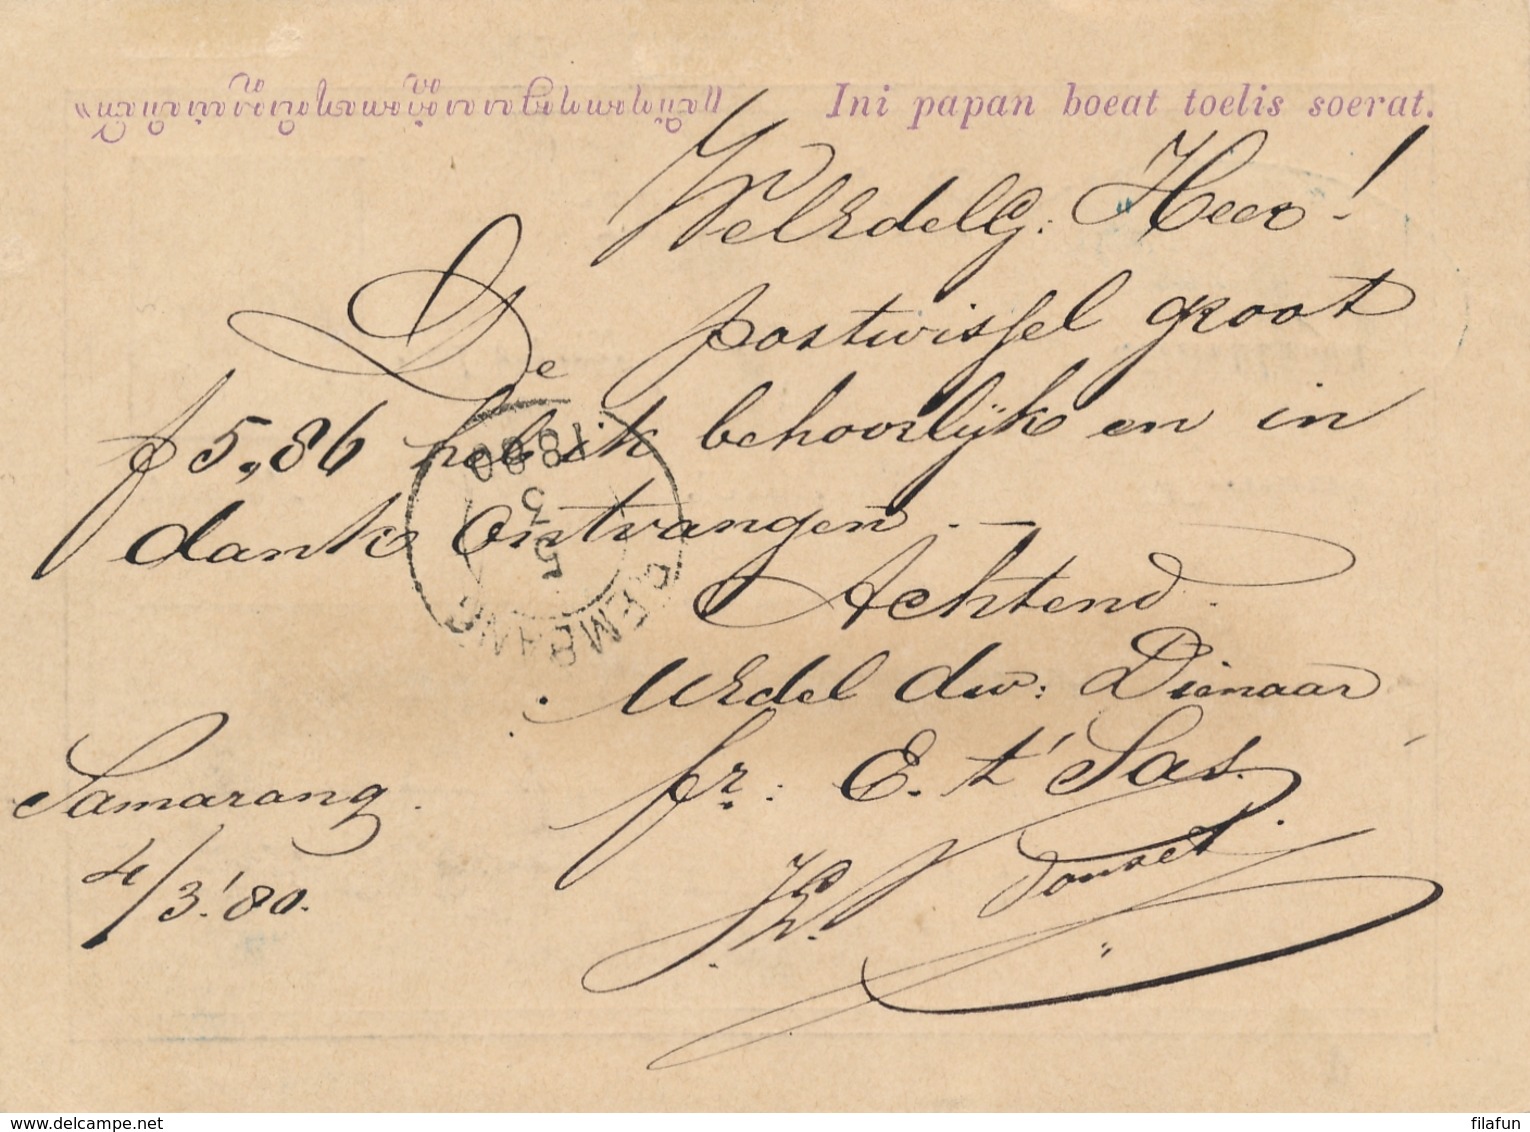 Ini papan boeat toelis soerat.
WelEdelG: Heer!
De postwissel groot
f 5,86 heb ik behoorlijk en in
dank ontvangen. —
Achtend.
UEdel dw: Dienaar
fr: E. t' Sas.
Samarang
4/3.'80.
REMBANG
5
3
1880
delcampe.net
filafun